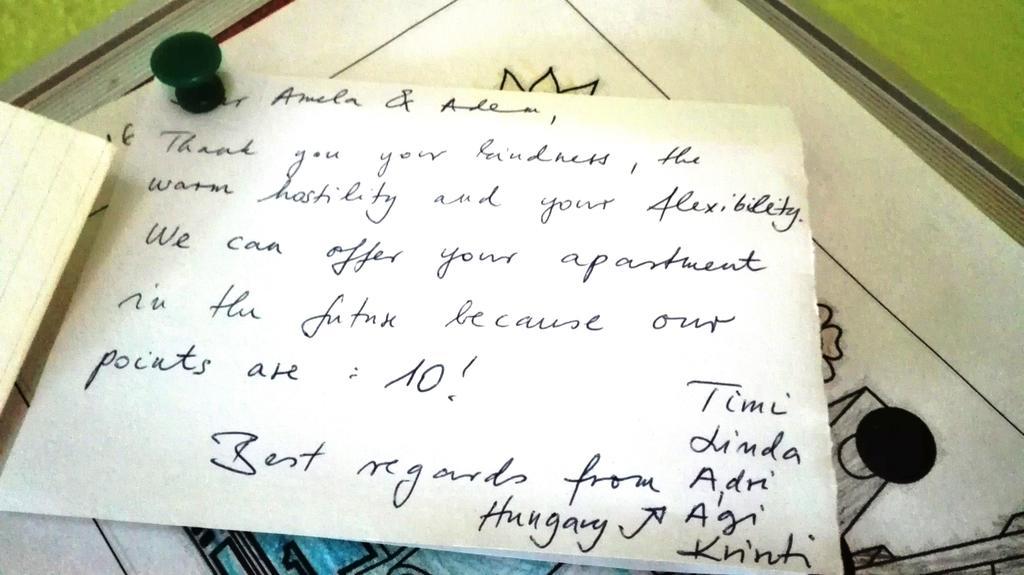 Dear Amela & Adem,
Thank you your kindness, the
warm hostility and your flexibility.
We can offer your apartment
in the future because our
points are : 10!
Best regards from
Hungary
Timi
Linda
Adri
Ági
Kriszti